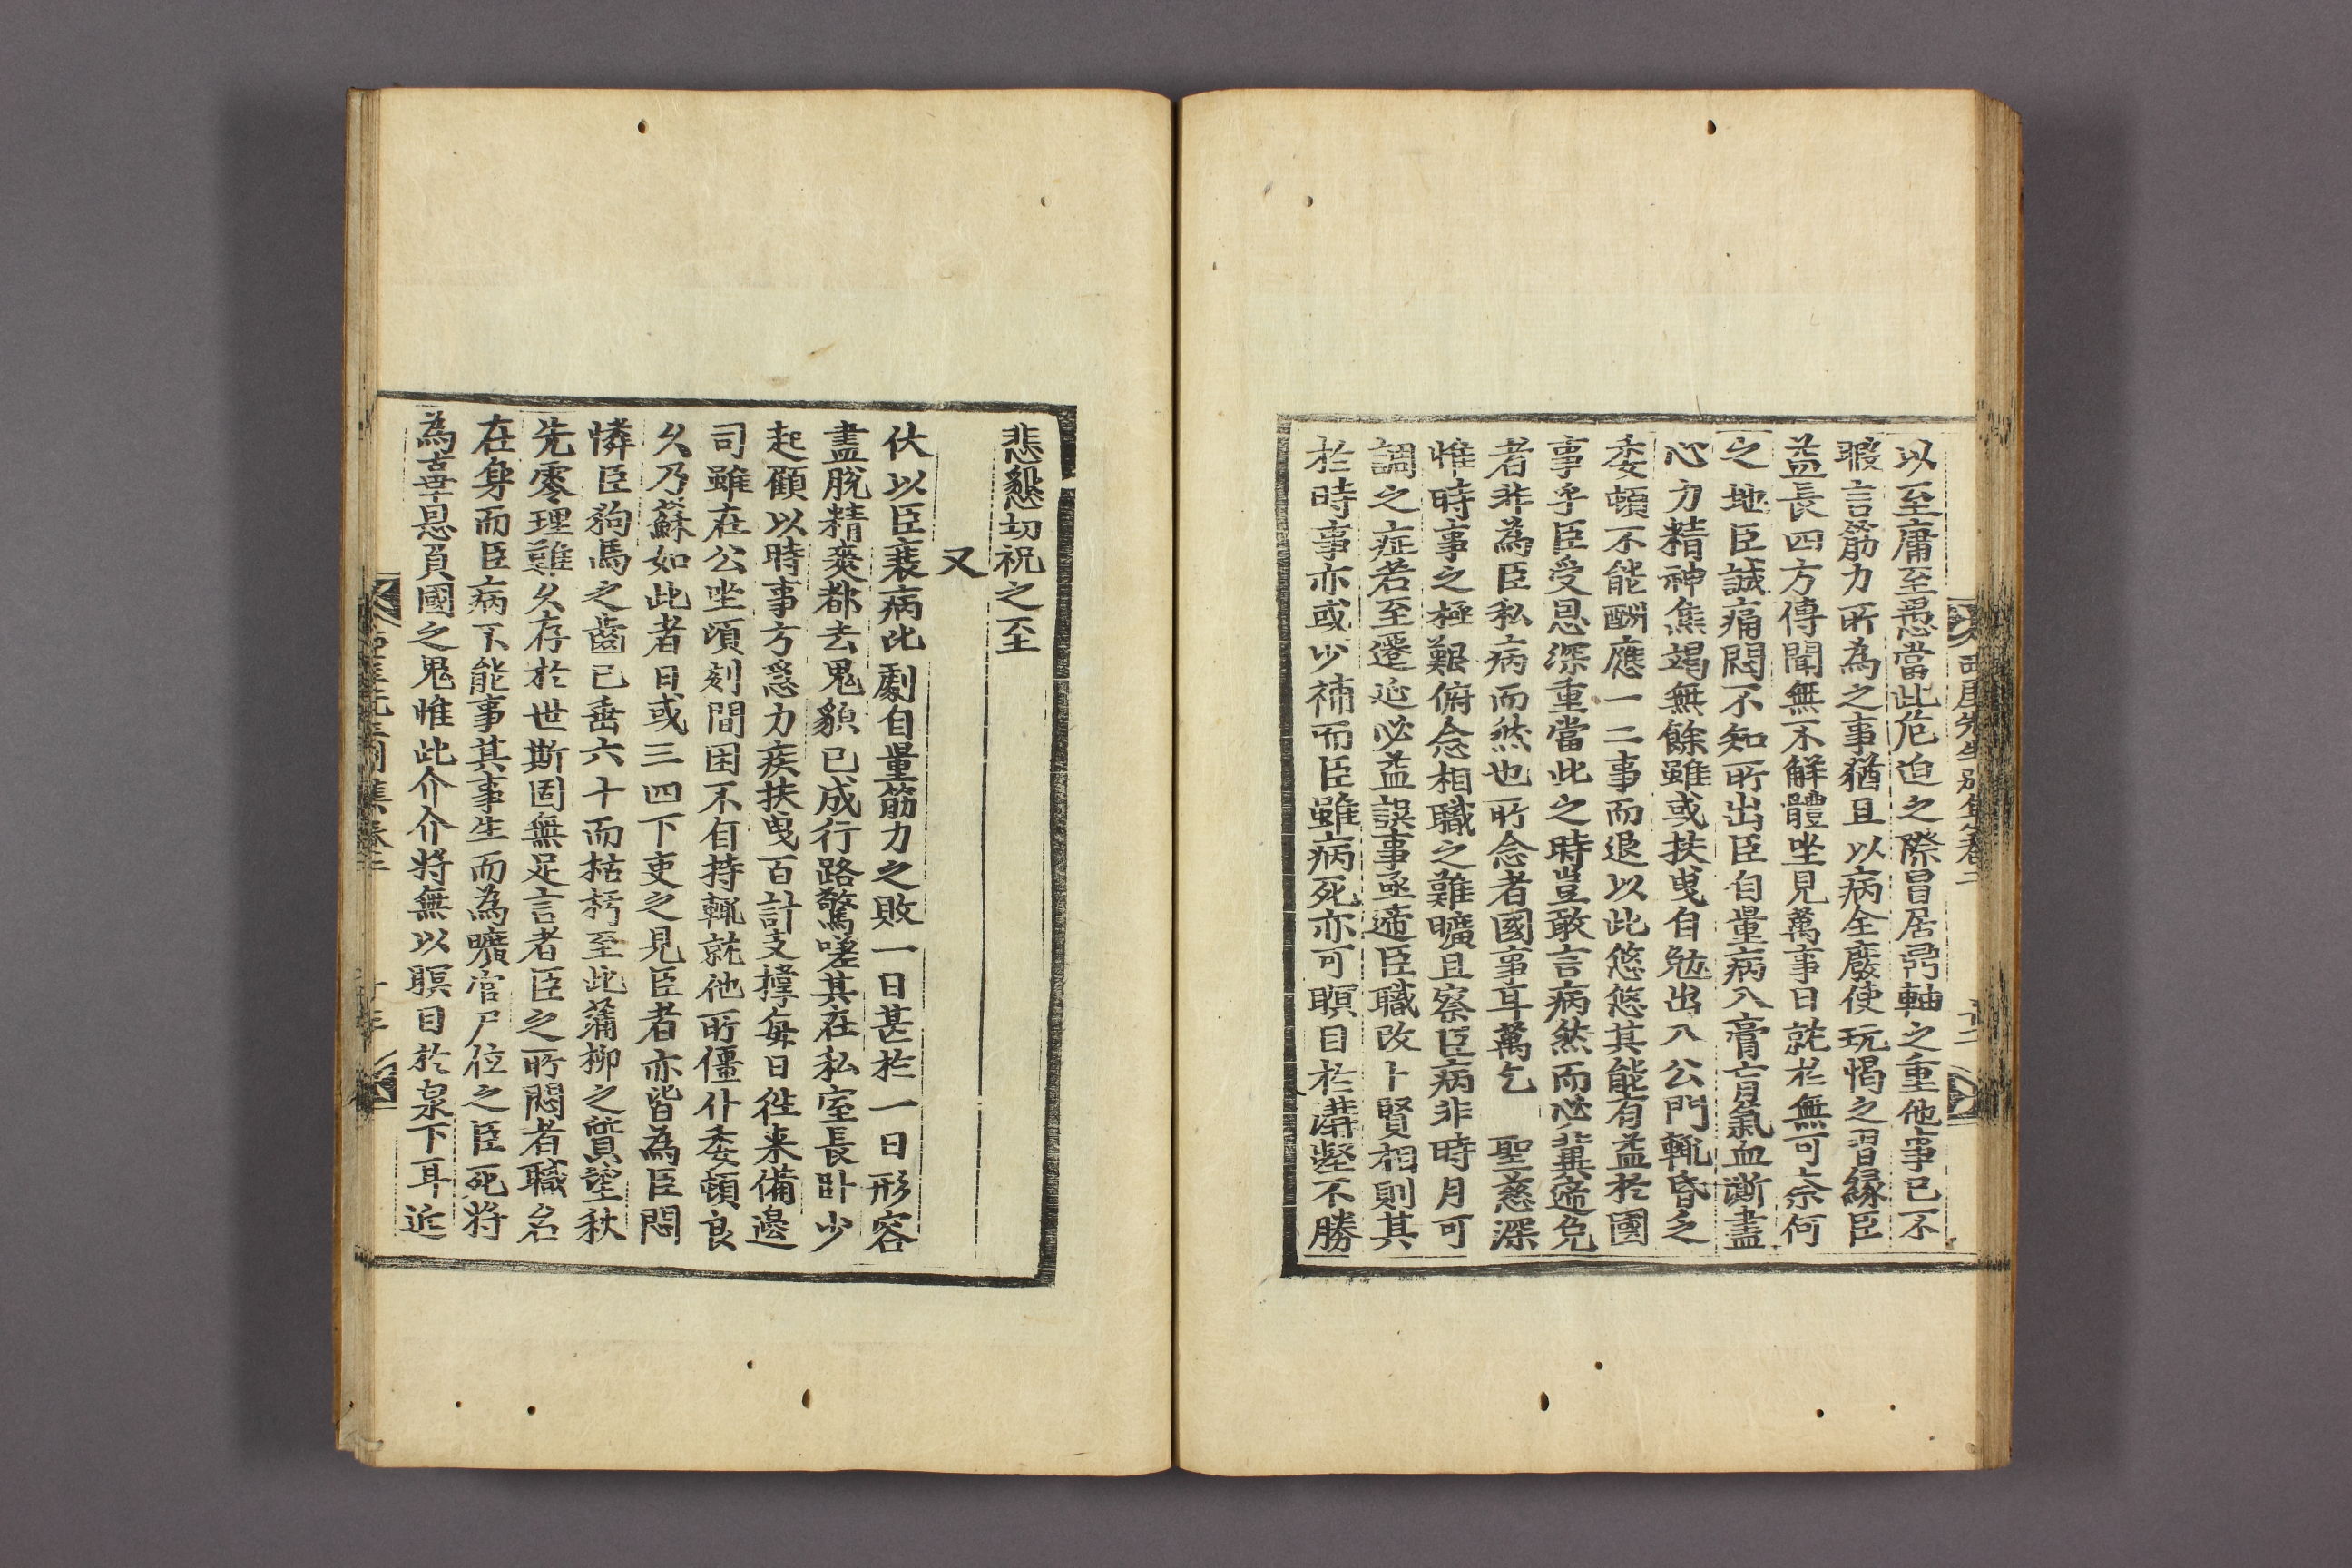 西厓先生別集卷二
以至庸至愚當此危迫之際冒居勻軸之重他事已不
暇言筋力所為之事猶且以病全廢使玩愒之習緣臣
益長四方傳聞無不解體坐見萬事日就於無可奈何
之地臣誠痛悶不知所出臣自量病入膏肓氣血澌盡
心力精神焦竭無餘雖或扶曳自勉出入公門輒昏之
委頓不能酬應一二事而退以此悠悠其能有益於國
事乎臣受恩深重當此之時豈敢言病然而必冀遞免
者非為臣私病而然也所念者國事耳萬乞 聖慈深
惟時事之極艱俯念相職之難曠且察臣病非時月可
調之症若至遷延必益誤事亟遞臣職改卜賢相則其
於時事亦或少補而臣雖病死亦可瞑目於溝壑不勝
悲懇切祝之至
又
伏以臣衰病比劇自量筋力之敗一日甚於一日形容
盡脫精爽都去鬼貌已成行路驚嗟其在私室長卧少
起顧以時事方急力疾扶曳百計支撐每日徃来備邊
司雖在公坐頃刻間困不自持輒就他所僵仆委頓良
久乃蘇如此者日或三四下吏之見臣者亦皆為臣悶
憐臣狗馬之齒已垂六十而枯朽至此蒲柳之質望秋
先零理難久存於世斯固無足言者臣之所悶者職名
在身而臣病不能事其事生而為曠官尸位之臣死將
為辜恩負國之鬼惟此介介將無以瞑目於泉下耳近